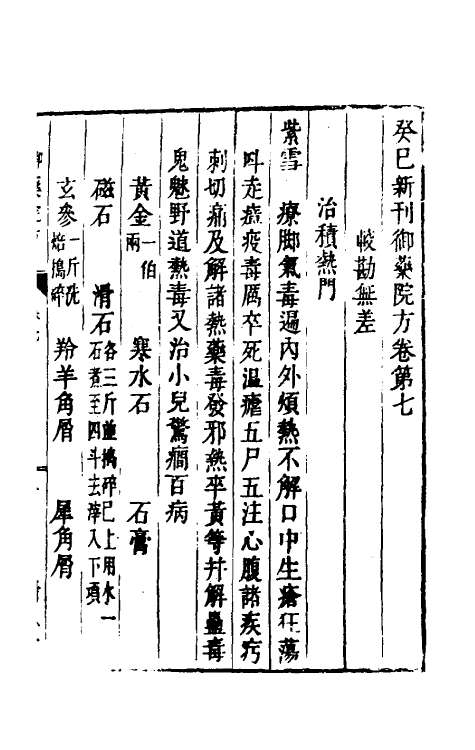 癸巳新刊御藥院方卷第七
𭭕勘無差
治積熱門
紫雪　療脚氣毒遍內外煩熱不解口中生瘡狂蕩
呌走瘴疫毒厲卒死溫瘧五尸五注心腹諸疾㽲
刺切痛及解諸熱藥毒發邪熱卒黃等并解蠱毒
鬼魅野道熱毒又治小兒驚癇百病
黃金一伯兩　寒水石　石膏
磁石　滑石各三斤並搗碎已上用水一石煮至四斗去滓入下項
玄參一斤洗焙搗碎　羚羊角屑　犀角屑